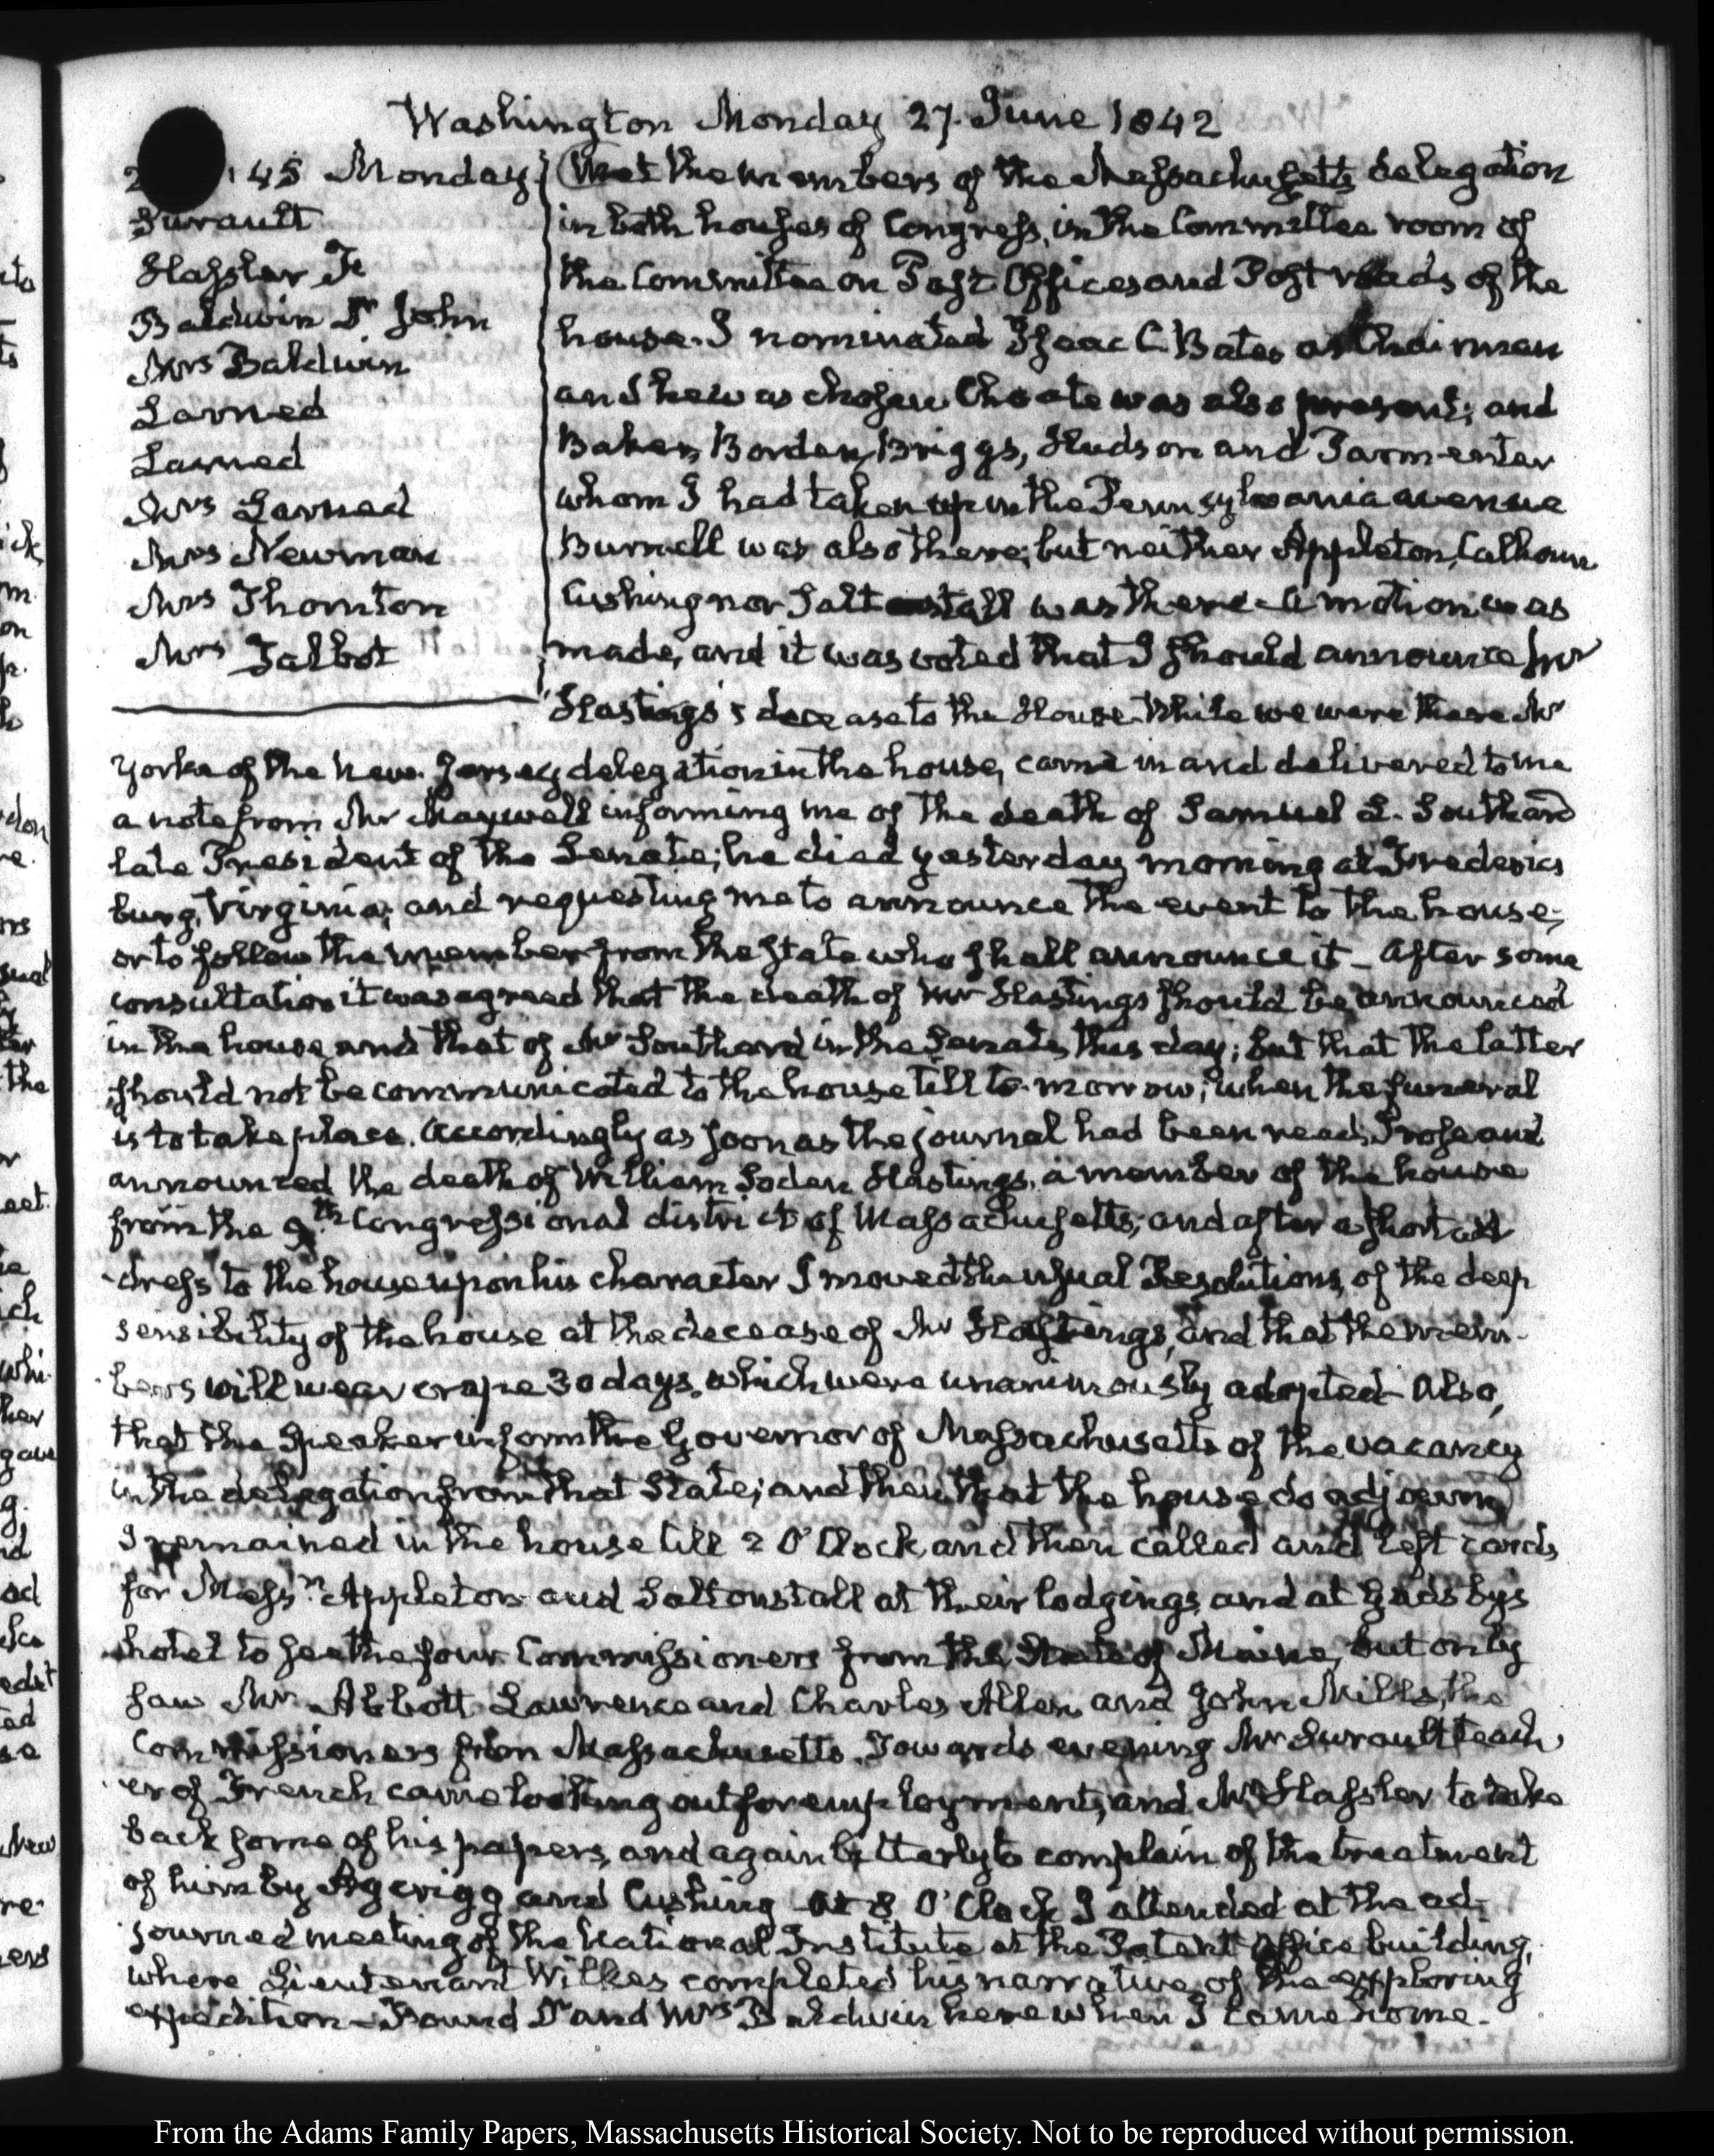 Washington Monday 27. June 1842
45 Monday
Surault
Hassler F
Baldwin Dr John
Mrs Baldwin
Larned
Larned
Mrs Larned
Mrs Newman
Mrs Thornton
Mrs Talbot
Met the members of the Massachusetts delegation
in both houses of Congress, in the Committee room of
the Committee on Post Offices and Post roads of the
house. I nominated Isaac C. Bates as Chairman
and he was chosen Choate was also present; and
Baker, Borden, Briggs, Hudson and Parmenter
whom I had taken up in the Pennsylvania avenue
Burnell was also there; but neither Appleton, Calhoun
Cushing nor Saltonstall was there. A motion was
made, and it was voted that I should announce Mr
Hastings's decease to the House. While we were there Mr
Yorke of the New Jersey delegation in the house, came in and delivered to me
a note from Mr Maxwell informing me of the death of Samuel L. Southard
late President of the Senate; he died yesterday morning at Fredericks
burg, Virginia; and requesting me to announce the event to the house;
or to follow the member from the State who shall announce it _ After some
consultation it was agreed that the death of Mr Hastings should be announced
in the house and that of Mr Southard in the Senate, this day; but that the latter
should not be communicated to the house till to-morrow; when the funeral
is to take place. Accordingly as soon as the journal had been read, I rose and
announced the death of William Soden Hastings, a member of the house
from the 9th. Congressional district of Massachusetts; and after a short ad
-dress to the house upon his character I moved the usual Resolutions, of the deep
sensibility of the house at the decease of Mr Hastings, and that the mem-
bers will wear crape 30 days, which were unanimously adopted. Also,
that the Speaker inform the Governor of Massachusetts of the vacancy
in the delegation from that State; and then that the house do adjourn
I remained in the house till 2 O'Clock, and then called and left cards
for Messrs. Appleton and Saltonstall at their lodgings, and at Gadsby's
hotel to see the four Commissioners from the State of Maine, but only
saw Mr Abbott Lawrence and Charles Allen, and John Mills, the
Commissioners from Massachusetts. Towards evening Mr Surault teach
er of French came looking out for employment, and Mr Hassler to take
back some of his papers, and again bitterly to complain of the treatment
of him by Aycrigg and Cushing At 8 O'Clock I attended at the ad-
journed meeting of the National Institute at the Patent Office building,
where Lieutenant Wilkes completed his narrative of the exploring
expedition - Found Dr and Mrs Baldwin here when I came home.
From the Adams Family Papers, Massachusetts Historical Society. Not to be reproduced without permission.